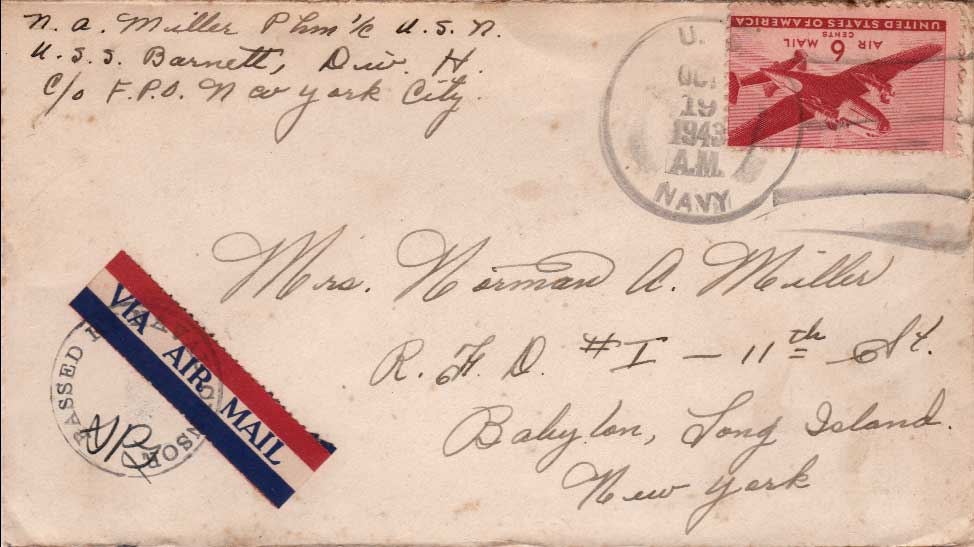 N. A. Miller Phm 1/c U. S. N.
U. S. S. Barnett, Div. H.
c/o F.P.O. New York City.
U.
OCT
19
1943
A.M.
NAVY
UNITED STATES OF AMERICA
AIR 6 MAIL
CENTS
Mrs. Norman A. Miller
R. F. D. #1 — 11th St.
Babylon, Long Island.
New York
VIA AIR MAIL
PASSED